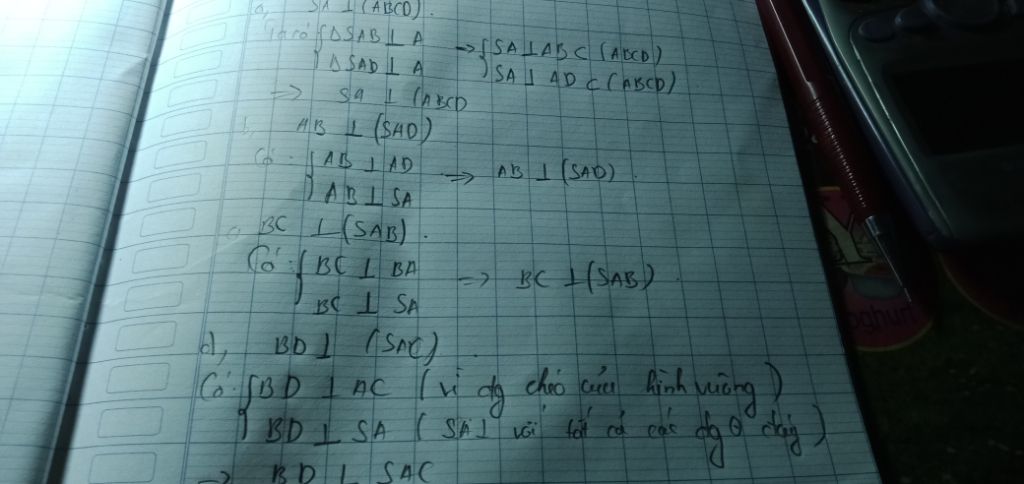 a, SA ⊥ (ABCD).
Ta có { ΔSAB ⊥ A → { SA ⊥ AB ⊂ (ABCD)
ΔSAD ⊥ A SA ⊥ AD ⊂ (ABCD)
=> SA ⊥ (ABCD
b, AB ⊥ (SAD)
Có { AB ⊥ AD => AB ⊥ (SAD).
AB ⊥ SA
c, BC ⊥ (SAB).
Có: { BC ⊥ BA => BC ⊥ (SAB).
BC ⊥ SA
d, BD ⊥ (SAC).
Có: { BD ⊥ AC (vì đg chéo của hình vuông)
BD ⊥ SA (SA ⊥ với tất cả các đg ở đáy)
-> BD ⊥ SAC
oghurt